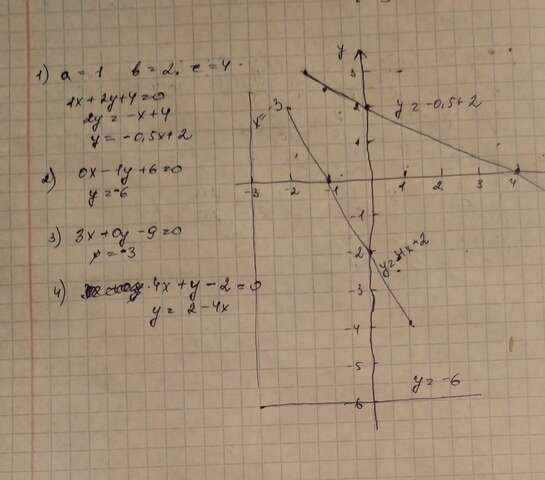 1) a = 1 b = 2; c = 4.
1x + 2y + 4 = 0
2y = -x + 4
y = -0,5x + 2
2) 0x - 1y + 6 = 0
y = -6
3) 3x + 0y - 9 = 0
x = -3
4) 4x + y - 2 = 0
y = 2 - 4x
y
3
x = -3
2
y = -0,5 + 2
1
-3 -2 -1 1 2 3 4
-1
-2
-3
-4
-5
y = -6
-6